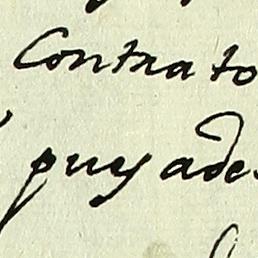 Contrato
puy ade